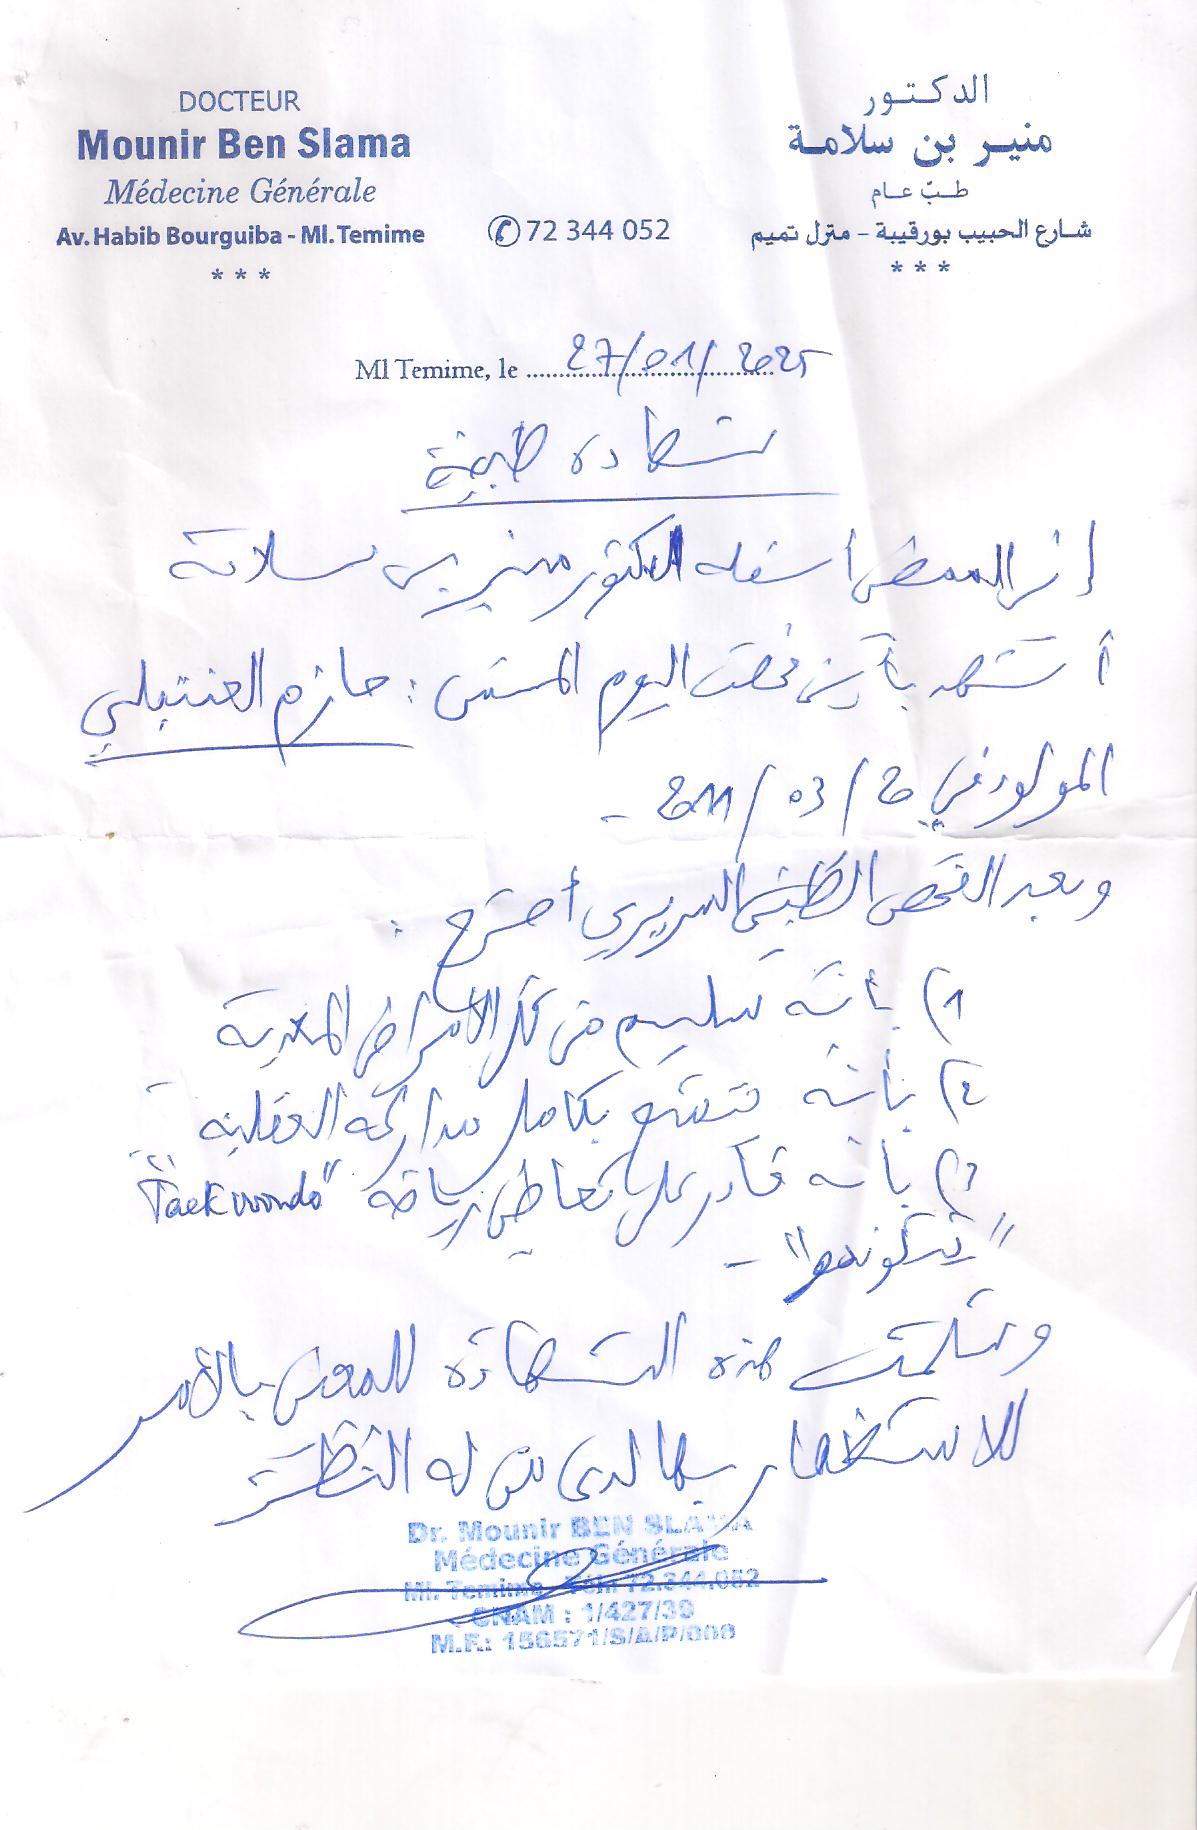 DOCTEUR
Mounir Ben Slama
Médecine Générale
Av. Habib Bourguiba - Ml. Temime
* * *
72 344 052
الدكتور
منير بن سلامة
طبّ عام
شارع الحبيب بورقيبة - منزل تميم
* * *
Ml Temime, le 27/01/2025
شهادة طبية
إني الممضي أسفله الدكتور منير بن سلامة
أشهد بأني فحصت اليوم المسمى : حازم العنتبلي
المولود في 20 / 03 / 2011 -
وبعد الفحص الطبي السريري أصرح :
1) بأنه سليم من كل الأمراض المعدية
2) بأنه متمتع بكامل مداركه العقلية
3) بأنه قادر على تعاطي رياضة "Taekwondo"
"تيكوندو" -
وسلمت هذه الشهادة للمعني بالأمر
للاستظهار بها لدى من له النظر
Dr. Mounir BEN SLAMA
Médecine Générale
Ml. Temime - Tél: 72.344.052
CNAM : 1/427/39
M.F.: 156571/S/A/P/000